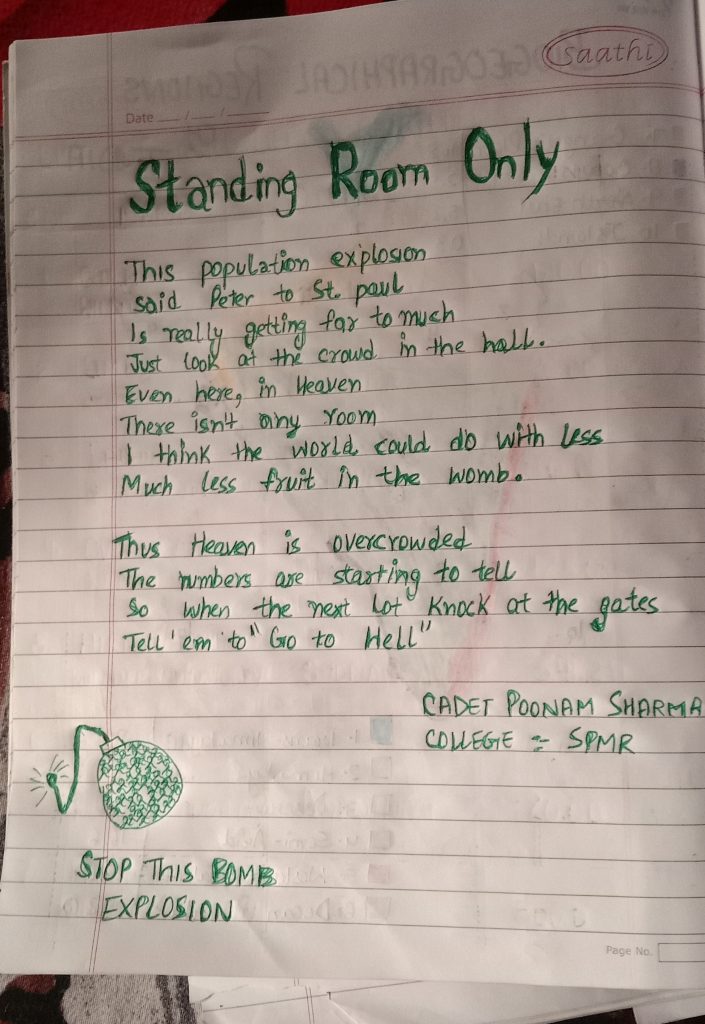 saathi
Date __/__/__
Standing Room Only
This population explosion
said Peter to St. paul
Is really getting far to much
Just look at the crowd in the hall.
Even here, in Heaven
There isn't any room
I think the world could do with less
Much less fruit in the womb.
Thus Heaven is overcrowded
The numbers are starting to tell
So when the next Lot Knock at the gates
Tell 'em to "Go to Hell"
CADET POONAM SHARMA
COLLEGE = SPMR
STOP THIS BOMB
EXPLOSION
Page No.